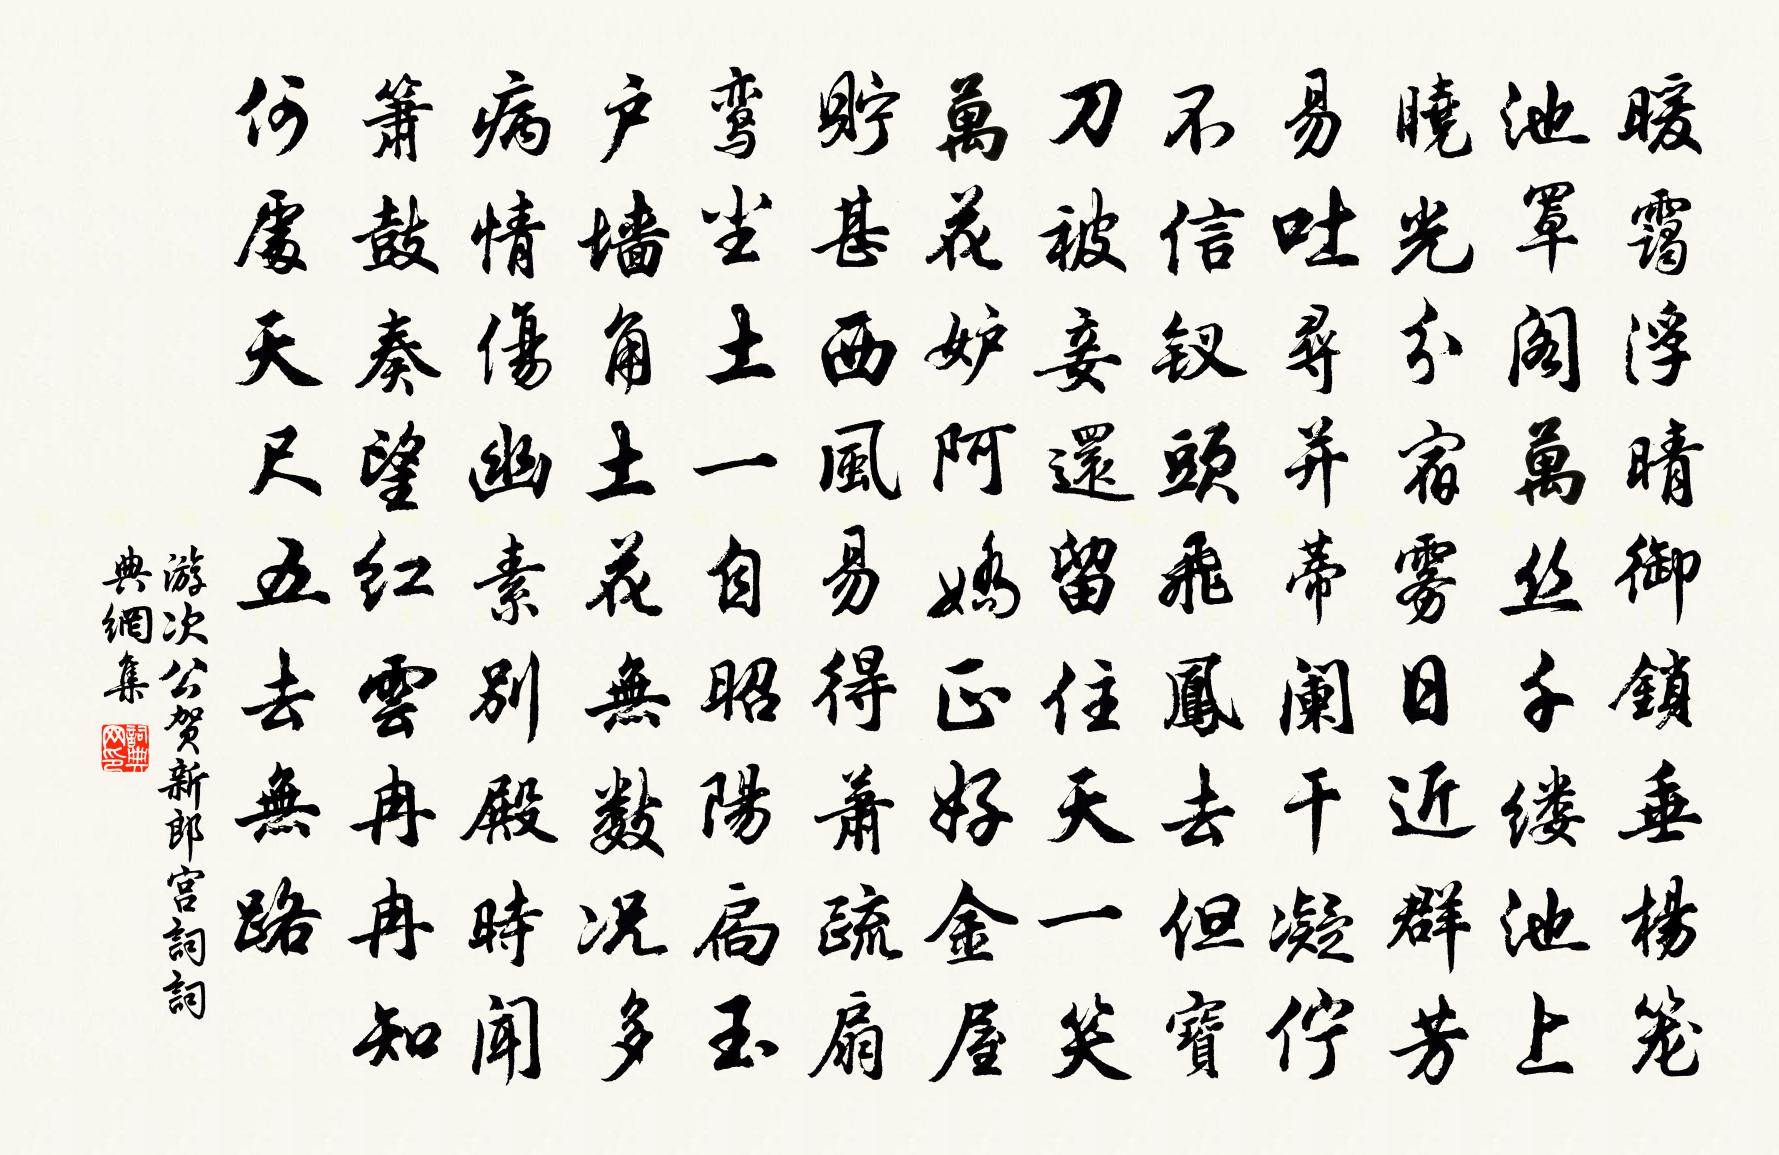 暖靄浮晴御鎖垂楊笼
池罩阁萬丝千缕池上
曉光分宿雾日近群芳
易吐尋并蒂阑干凝佇
不信釵頭飛鳳去但寶
刀被妾還留住天一笑
萬花妒阿嬌正好金屋
貯甚西風易得蕭疏扇
鸾尘土一自昭陽扃玉
户墙角土花無数况多
病情傷幽素别殿時聞
簫鼓奏望红雲冉冉知
何處天尺五去無路
游次公贺新郎宫詞詞
典網集
詞典网印